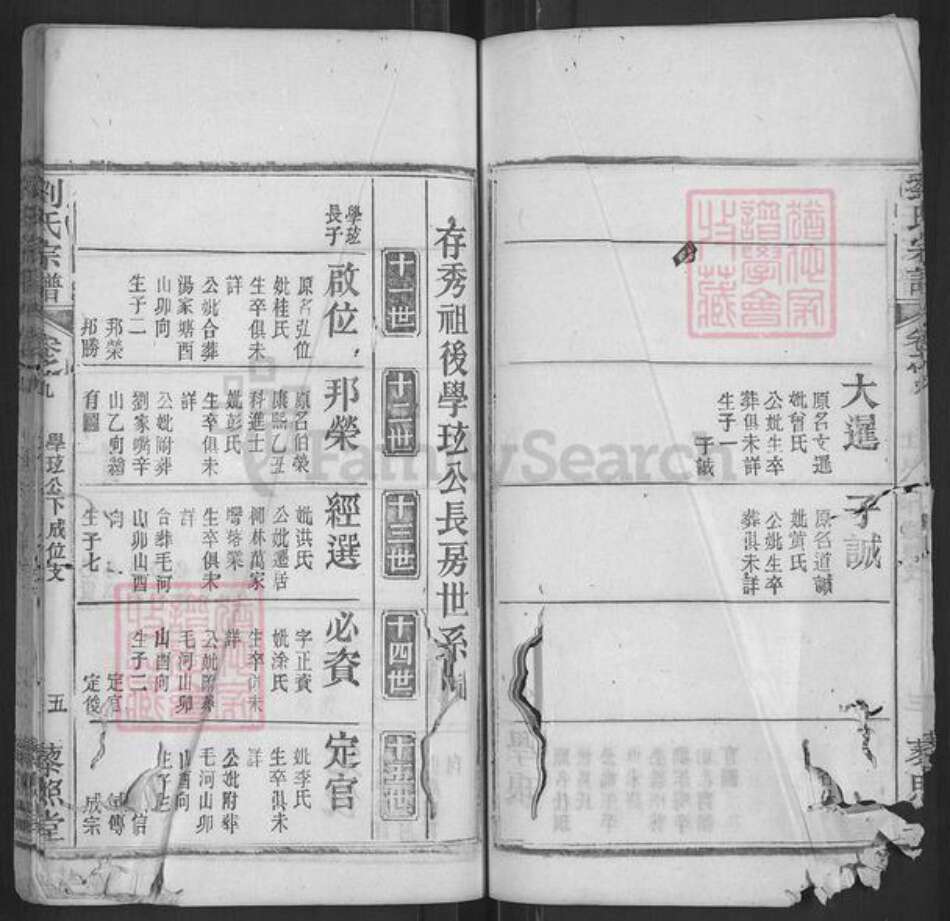 大暹
原名文暹
妣曾氏
公妣生卒
葬俱未詳
生子一
子誠
子誠
原名道誠
妣黃氏
公妣生卒
葬俱未詳
存秀祖後學玹公長房世系圖
十一世
十二世
十三世
十四世
十五世
學玹
長子
啟位
原名弘位
妣桂氏
生卒俱未
詳
公妣合葬
湯家塘酉
山卯向
生子二
邦榮
邦勝
邦榮
原名伯榮
康熙乙丑
科進士
妣彭氏
生卒俱未
公妣附葬
劉家嘴辛
山乙向
有圖
經選
妣洪氏
公妣遷居
柳林萬家
生卒俱未
詳
合葬毛河
山卯山酉
向
生子七
必資
字正資
妣涂氏
生卒俱未
詳
公妣附葬
毛河山卯
山酉向
生子二
定官
定俊
定官
妣李氏
生卒俱未
詳
公妣附葬
毛河山卯
山酉向
成宗
劉氏宗譜
卷之九
學玹公下啟位支
五
藜照堂
FamilySearch